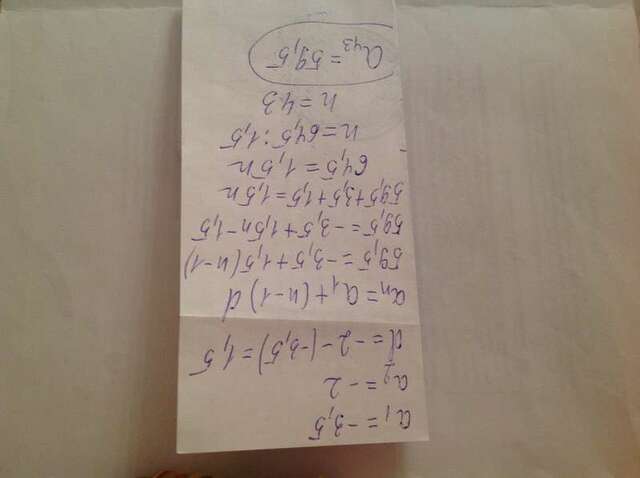 a₁ = -3,5
a₂ = -2
d = -2-(-3,5) = 1,5
aₙ = a₁ + (n-1) d
59,5 = -3,5 + 1,5(n-1)
59,5 = -3,5 + 1,5n - 1,5
59,5 + 3,5 + 1,5 = 1,5n
64,5 = 1,5n
n = 64,5 : 1,5
n = 43
a₄₃ = 59,5